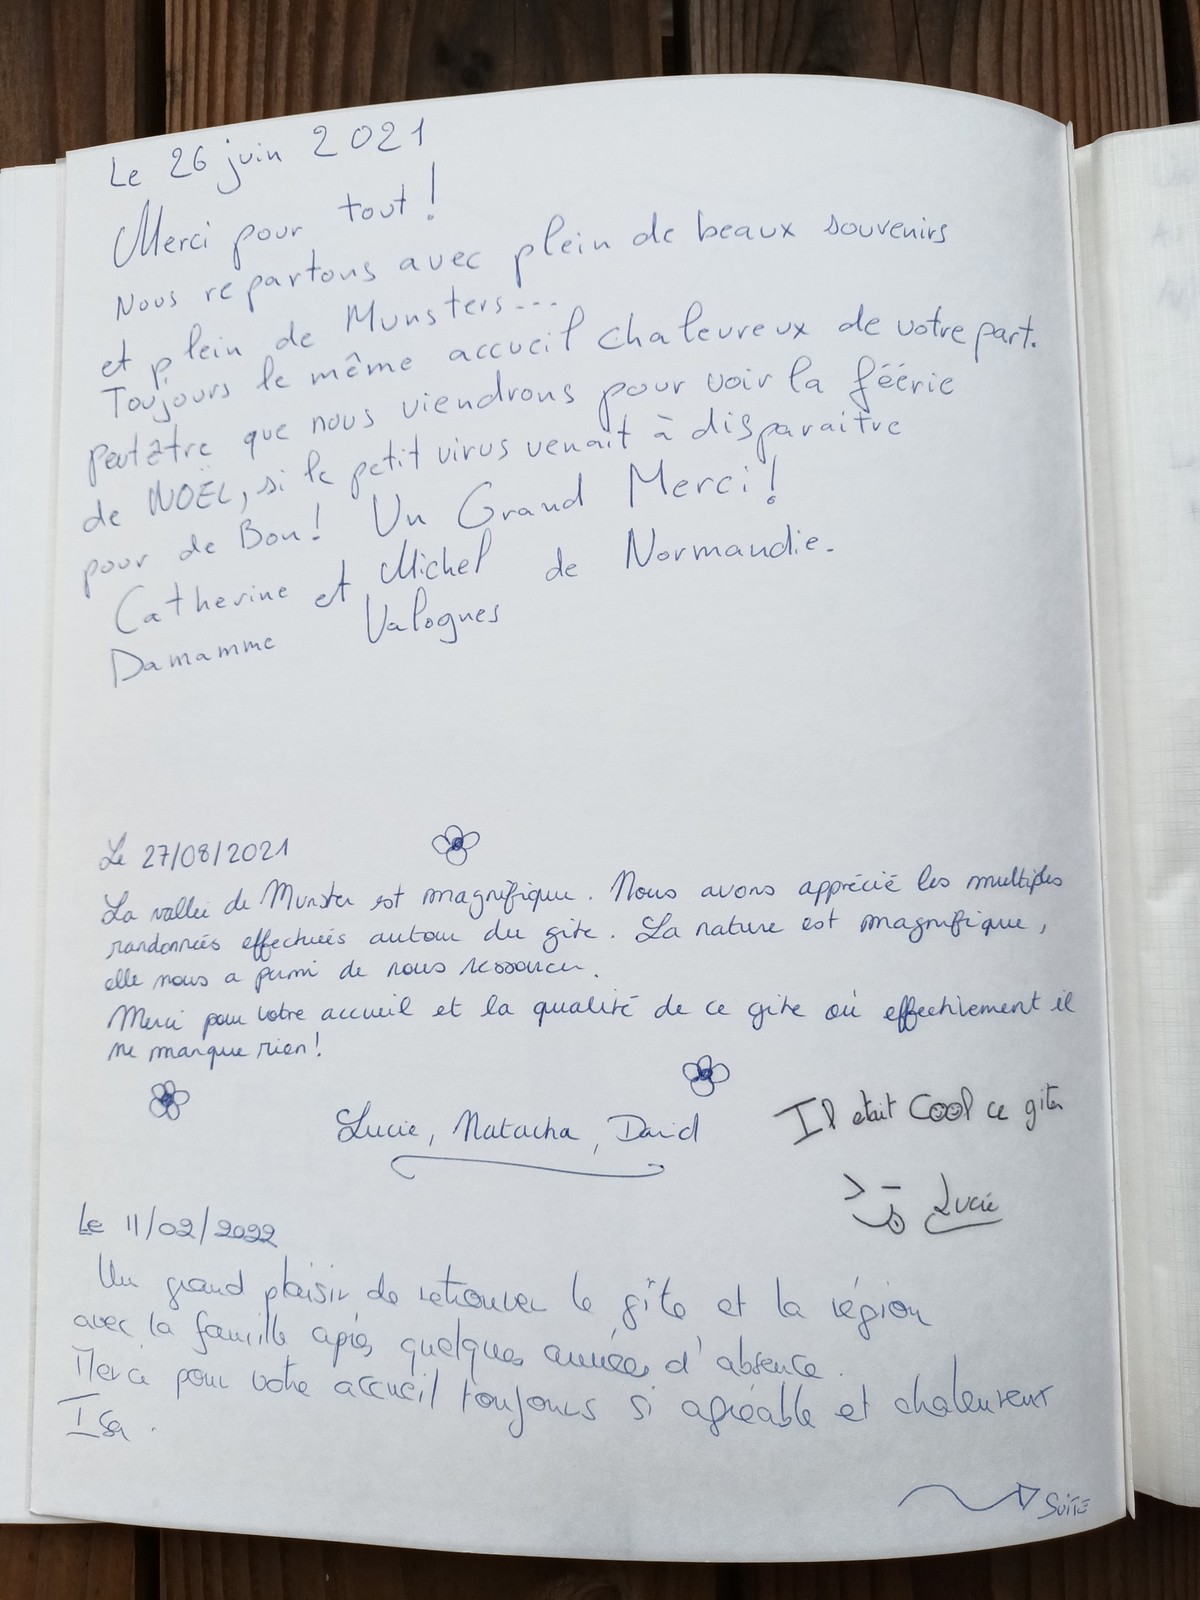 Le 26 juin 2021
Merci pour tout !
Nous repartons avec plein de beaux souvenirs
et plein de Munsters...
Toujours le même accueil chaleureux de votre part.
peut être que nous viendrons pour voir la féérie
de NOËL, si le petit virus venait à disparaitre
pour de Bon ! Un Grand Merci !
Catherine et Michel de Normandie.
Damamme Valognes
Le 27/08/2021
La vallée de Munster est magnifique. Nous avons apprécié les multiples
randonnées effectuées autour du gite. La nature est magnifique,
elle nous a permi de nous ressourcer.
Merci pour votre accueil et la qualité de ce gite où effectivement il
ne manque rien !
Lucie, Natacha, David
Il était Cool ce gite
Lucie
Le 11/02/2022
Un grand plaisir de retrouver le gîte et la région
avec la famille après quelques années d'absence.
Merci pour votre accueil toujours si agréable et chaleureux
Isa.
SUITE